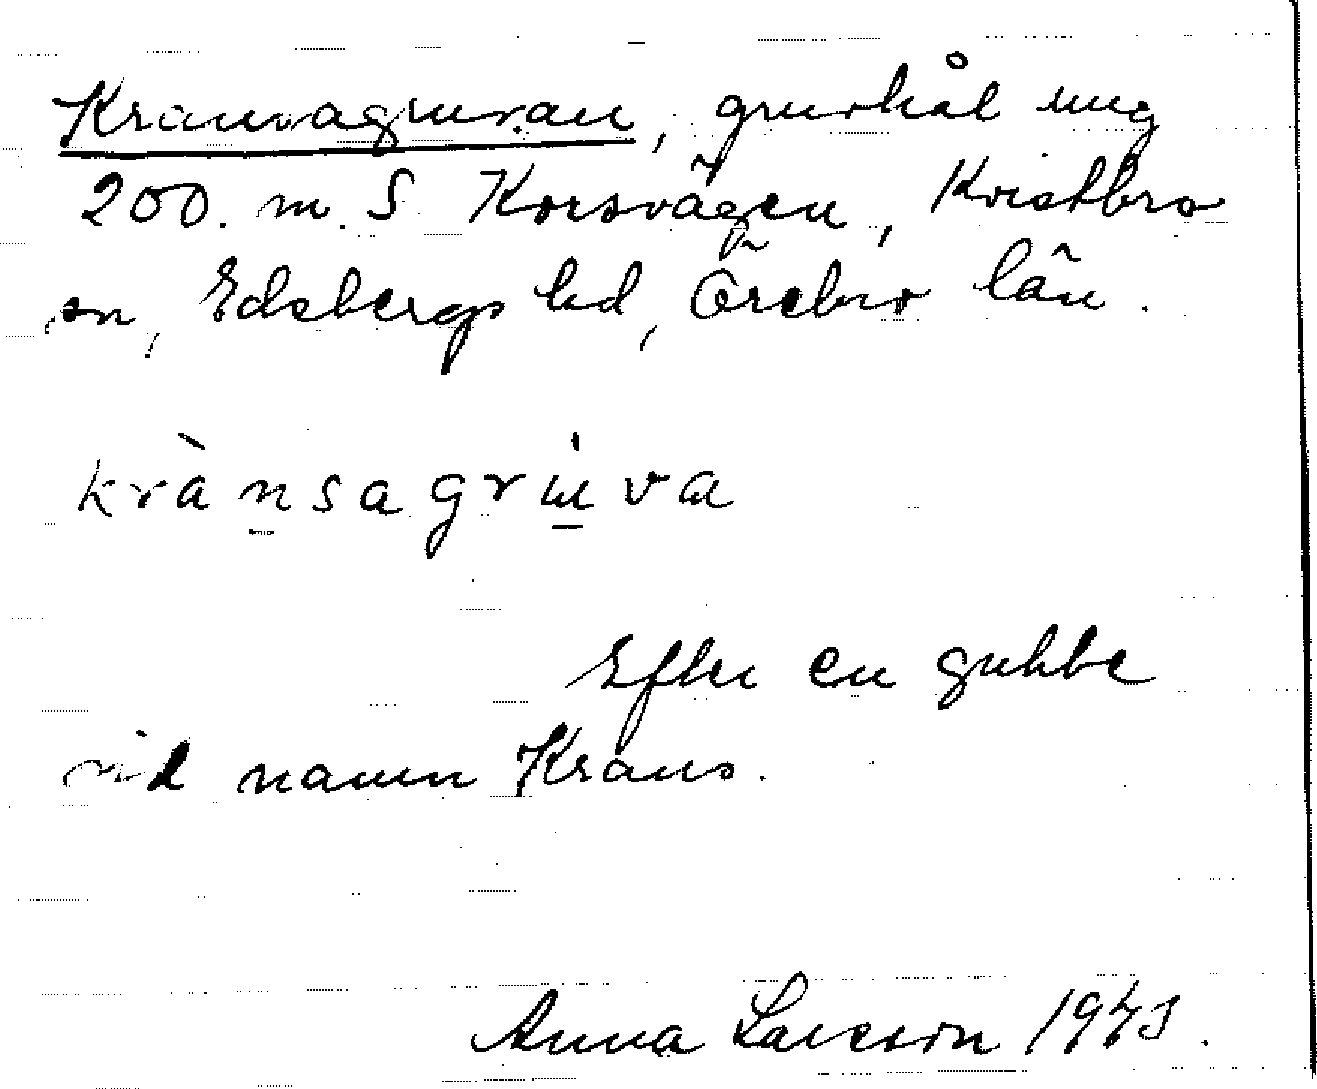 Kransagruvan, gruvhål ung
200. m. S Korsvägen, Kvistbro
sn, Edsbergs hd, Örebro län.
krànsagrùva
Efter en gubbe
vid namn Krans.
Anna Larsson